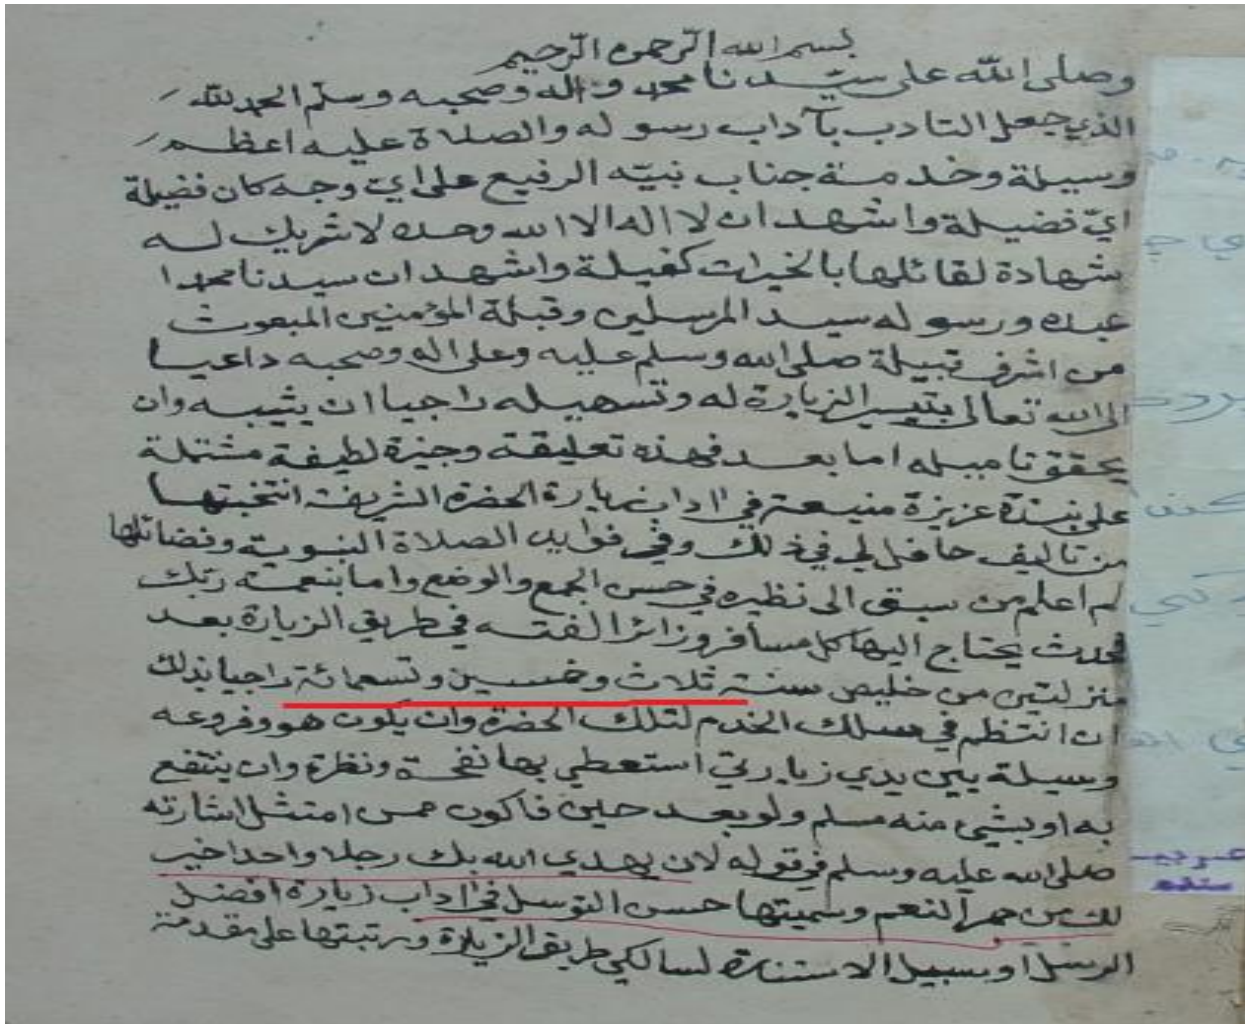 بسم الله الرحمن الرحيم
وصلى الله على سيدنا محمد وآله وصحبه وسلم الحمد لله
الذي جعل التادب بآداب رسوله والصلاة عليه اعظم
وسيلة وخدمة جناب نبيه الرفيع على اي وجه كان فضيلة
اي فضيلة واشهد ان لا اله الا الله وحده لا شريك له
شهادة لقائلها بالخيرات كفيلة واشهد ان سيدنا محمدا
عبده ورسوله سيد المرسلين وقبلة المؤمنين المبعوث
من اشرف قبيلة صلى الله وسلم عليه وعلى اله وصحبه داعيا
الى الله تعالى بتيسير الزيارة له وتسهيله راجيا ان يثيبه وان
يحقق تاميله اما بعد فهذه تعليقة وجيزة لطيفة مشتملة
على نبذة عزيزة منيعة في اداب زيارة الحضرة الشريفة انتخبتها
من تاليف حافل لي في ذلك وفي فوايد الصلاة النبوية وفضائلها
لم اعلم من سبق الى نظيره في حسن الجمع والوضع واما بنعمة ربك
فحدث يحتاج اليها كل مسافر وزائر الفته في طريق الزيارة بعد
منزلتين من خليص سنة ثلاث وخمسين وتسعمائة راجيا بذلك
ان انتظم في مسلك الخدم لتلك الحضرة وان يكون هو وفروعه
وسيلة بين يدي زيارتي استعطي بها نفحة ونظرة وان ينتفع
به او بشيء منه مسلم ولو بعد حين فاكون ممن امتثل اشارته
صلى الله عليه وسلم في قوله لان يهدي الله بك رجلا واحدا خير
لك من حمر النعم وسميتها حسن التوسل في اداب زيارة افضل
الرسل او سبيل الاستنارة لسالكي طريق الزيارة ورتبتها على مقدمة